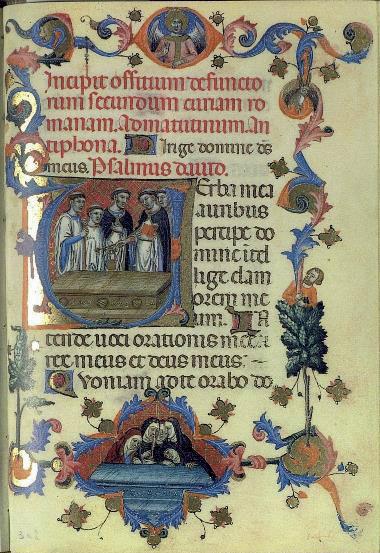 Incipit offitium defuncto
rum secundum curiam ro
manam. Ad matutinum. An
tiphona. Dirige domine ds
meus. Psalmus dauid.
Verba mea
auribus
percipe do
mine itel
lige clam
orem me
um. Jn
tende uoci orationis mee.
rex meus et deus meus.
Quoniam ad te orabo do